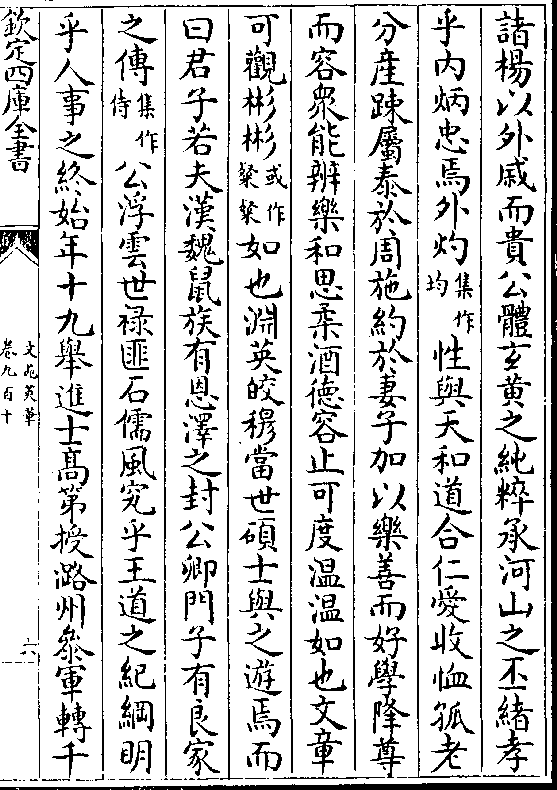 諸楊以外戚而貴公體玄黄之純粹承河山之丕緒孝
乎内炳忠焉外灼集作均性與天和道合仁愛收恤孤老
分産踈屬泰於周施約於妻子加以樂善而好學降尊
而容衆能辨樂和思柔酒德容止可度温温如也文章
可觀彬彬或作粲粲如也淵英皎穆當世碩士與之遊焉而
曰君子若夫漢魏鼠族有恩澤之封公卿門子有良家
之傳集作侍公浮雲世禄匪石儒風究乎王道之紀綱明
乎人事之終始年十九舉進士髙第授潞州叅軍轉千
欽定四庫全書
文苑英華
卷九百十
六